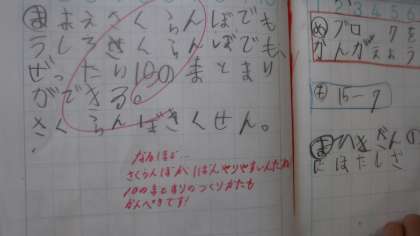 まえさくらんぼでも
うしろさくらんぼでも、
ぜったい10のまとまり
ができる。
さくらんぼさくせん。
なるほど…
さくらんぼが1ばんやりやすいんだね
10のまとまりのつくりかたも
かんぺきです!
め ブロックを
かんがえよう
も 15-7
ま ひきざんの
たしざ